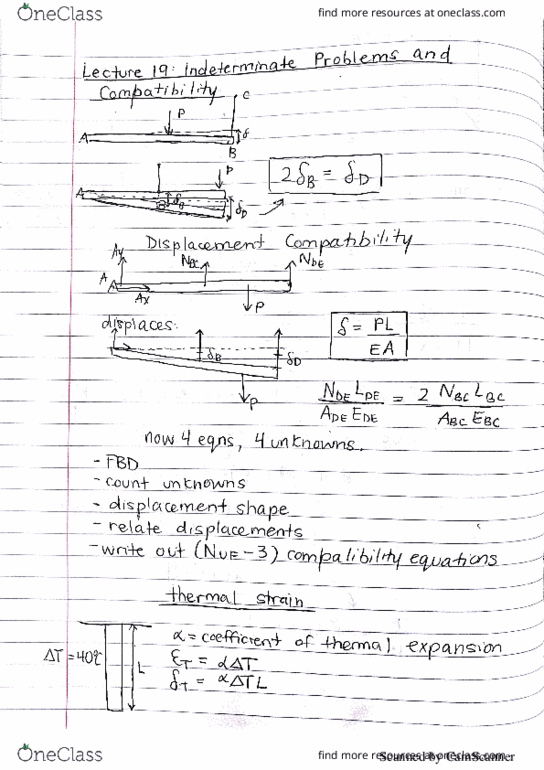 OneClass
find more resources at oneclass.com
Lecture 19: Indeterminate Problems and
Compatibility
C
P
δ
A
B
P
A
B
δB
δD
2δB = δD
Displacement Compatibility
Ay
NBC
NDE
A
Ax
P
displaces:
δB
δD
P
δ = PL
EA
NDE LDE = 2 NBC LBC
ADE EDE ABC EBC
now 4 eqns, 4 unknowns.
- FBD
- count unknowns
- displacement shape
- relate displacements
- write out (NUE - 3) compalibility equations
thermal strain
ΔT = 40°C
L
α = coefficient of thermal expansion
ƐT = αΔT
δT = αΔTL
OneClass
find more resources at oneclass.com
Scanned by CamScanner